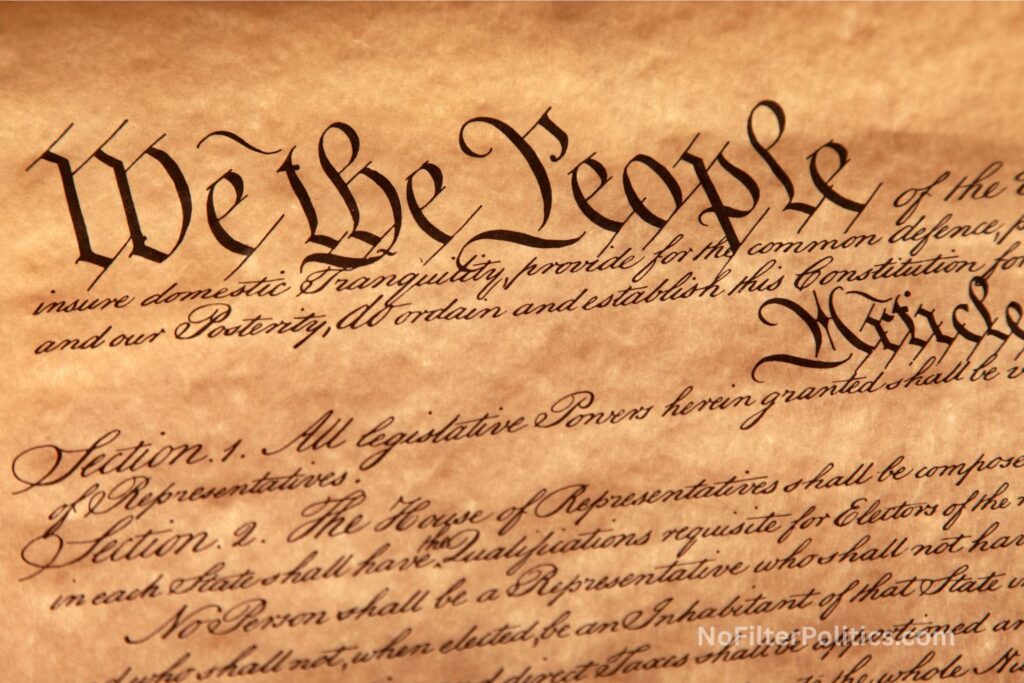 We the People of the
insure domestic Tranquility, provide for the common defence,
and our Posterity, do ordain and establish this Constitution for
Article
Section. 1. All legislative Powers herein granted shall be
of Representatives.
Section. 2. The House of Representatives shall be compose
in each State shall have the Qualifications requisite for Electors of the
No Person shall be a Representative who shall not hav
who shall not, when elected, be an Inhabitant of that State
NoFilterPolitics.com
and direct Taxes shall be apportioned
the whole Nu